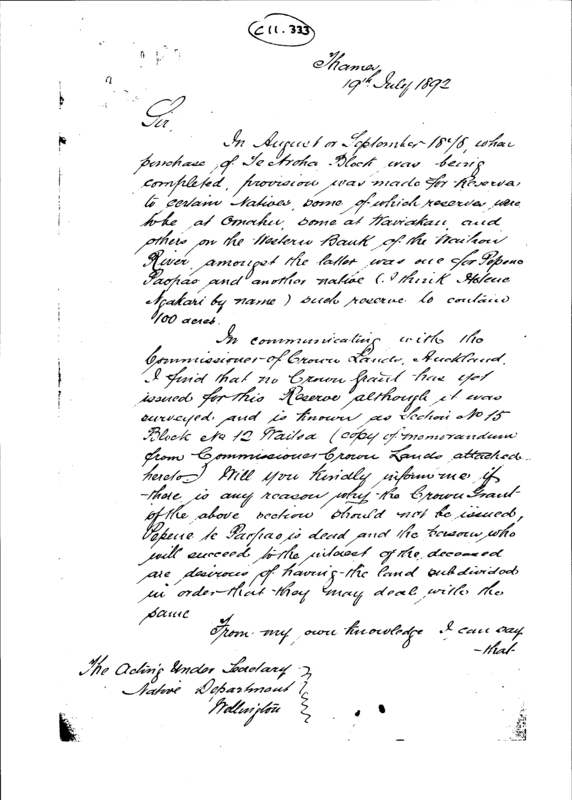 C11.333
Thames
19th July 1892
Sir,
In August or September 1878, when
purchase of Te Aroha Block was being
completed, provision was made for Reserves
to certain Natives, some of which reserves were
to be at Omahu, some at Wairakau and
others on the Western Bank of the Waihou
River, amongst the latter was one for Pepene
Paopao and another native (I think Helene
Ngakari by name) such reserve to contain
100 acres.
In communicating with the
Commissioner of Crown Lands, Auckland.
I find that no Crown Grant has yet
issued for this Reserve although it was
surveyed and is known as Section No 15
Block No 12 Waitoa (copy of memorandum
from Commissioner Crown Lands attached
hereto) Will you kindly inform me if
there is any reason why the Crown Grant
of the above section should not be issued,
Pepene te Paopao is dead and the persons who
will succeed to the interest of the deceased
are desirous of having the land subdivided
in order that they may deal with the
same
From my own knowledge I can say
that
The Acting Under Secretary
Native Department
Wellington